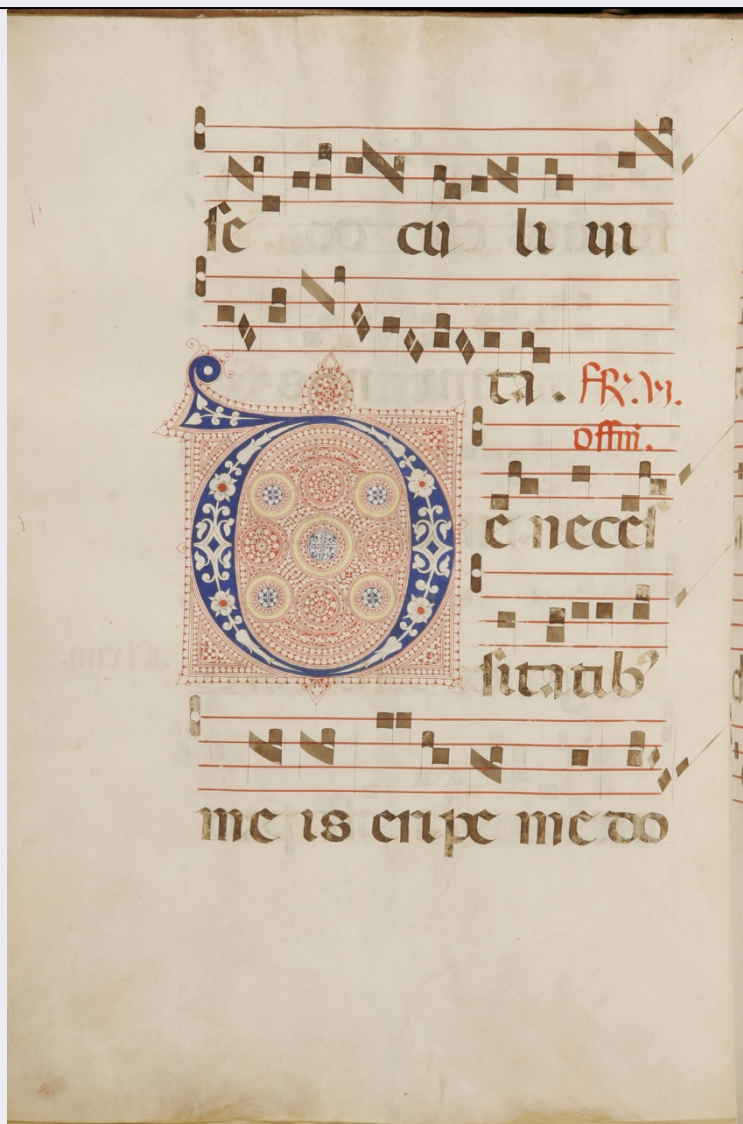 ſe cu li ui
ta . FR'. VI.
offm.
De neceſ
ſitatib'
me is eripe me do